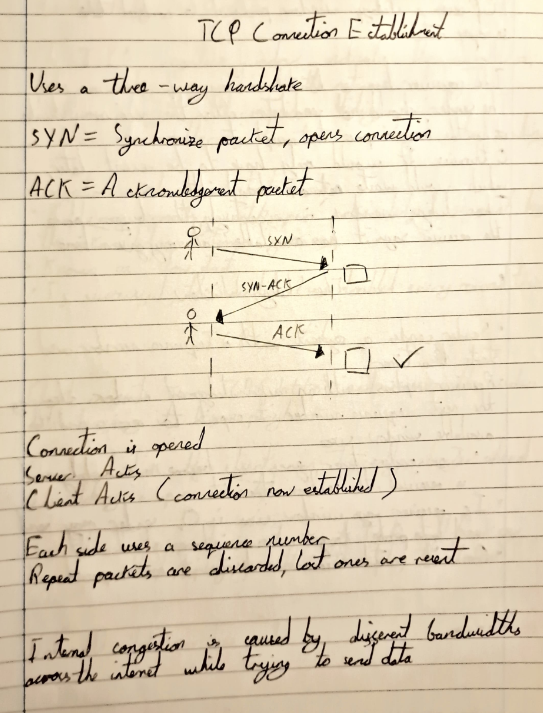 TCP Connection Establishment
Uses a three-way handshake
SYN = Synchronize packet, opens connection
ACK = Acknowledgement packet
SYN
SYN-ACK
ACK
Connection is opened
Server Acks
Client Acks (connection now established)
Each side uses a sequence number
Repeat packets are discarded, lost ones are resent
Internal congestion is caused by different bandwidths
across the internet while trying to send data